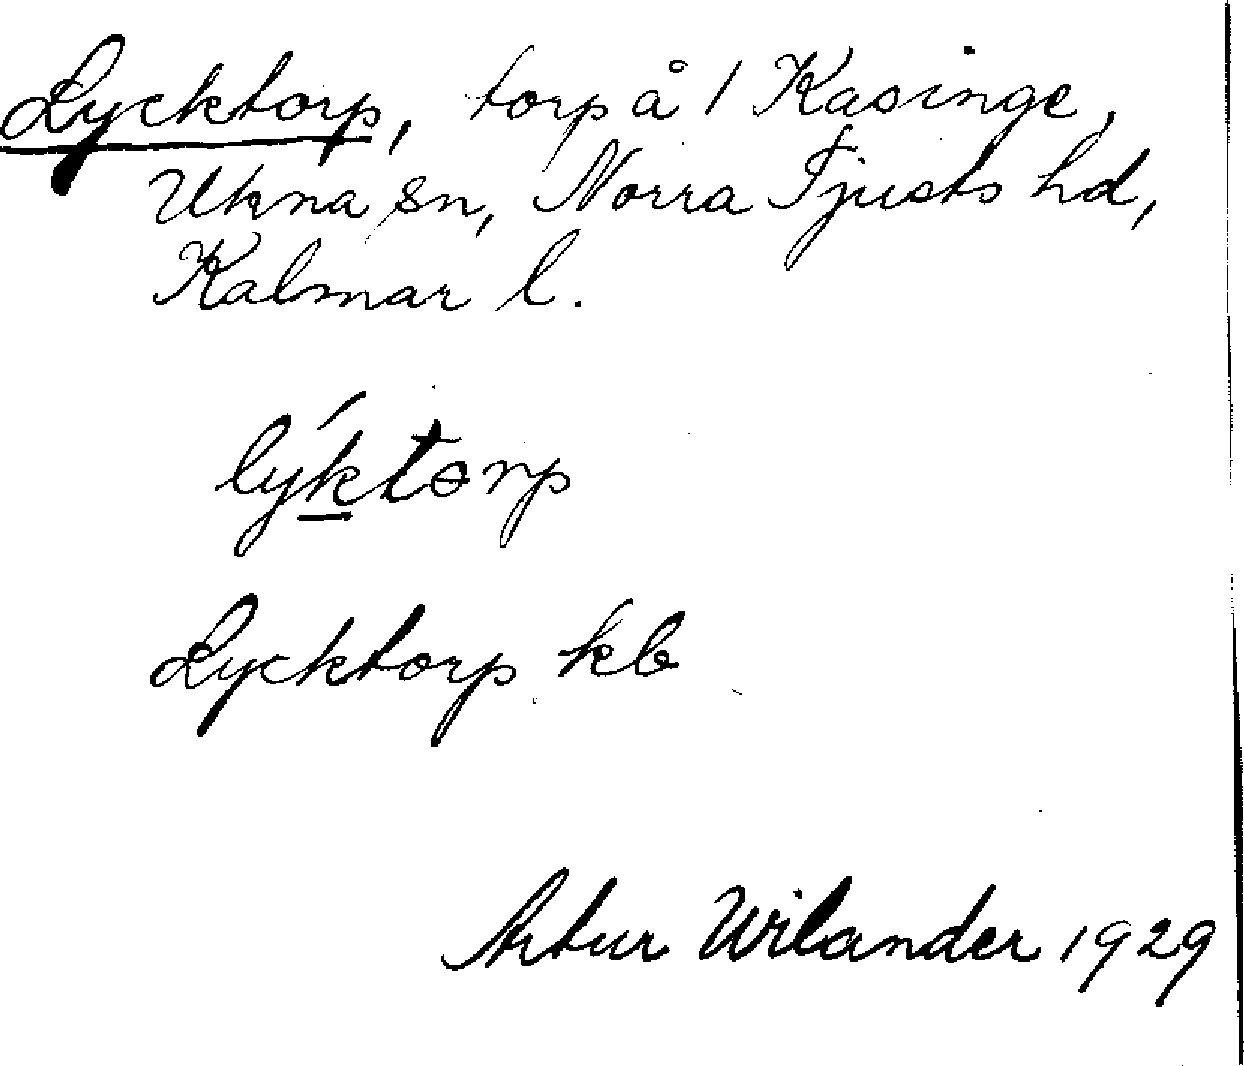 Lycktorp, torp å 1 Kasinge,
Ukna sn, Norra Tjusts hd,
Kalmar l.
lýktɵrp
Lycktorp kb
Artur Wilander 1929